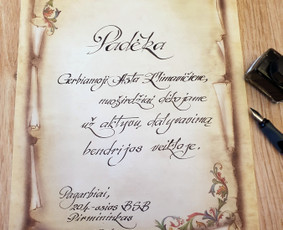 Padėka
Gerbiamoji Asta Zimanienė,
nuoširdžiai dėkojame
už aktyvų dalyvavimą
bendrijos veikloje.
Pagarbiai,
204-osios BSB
Pirmininkas